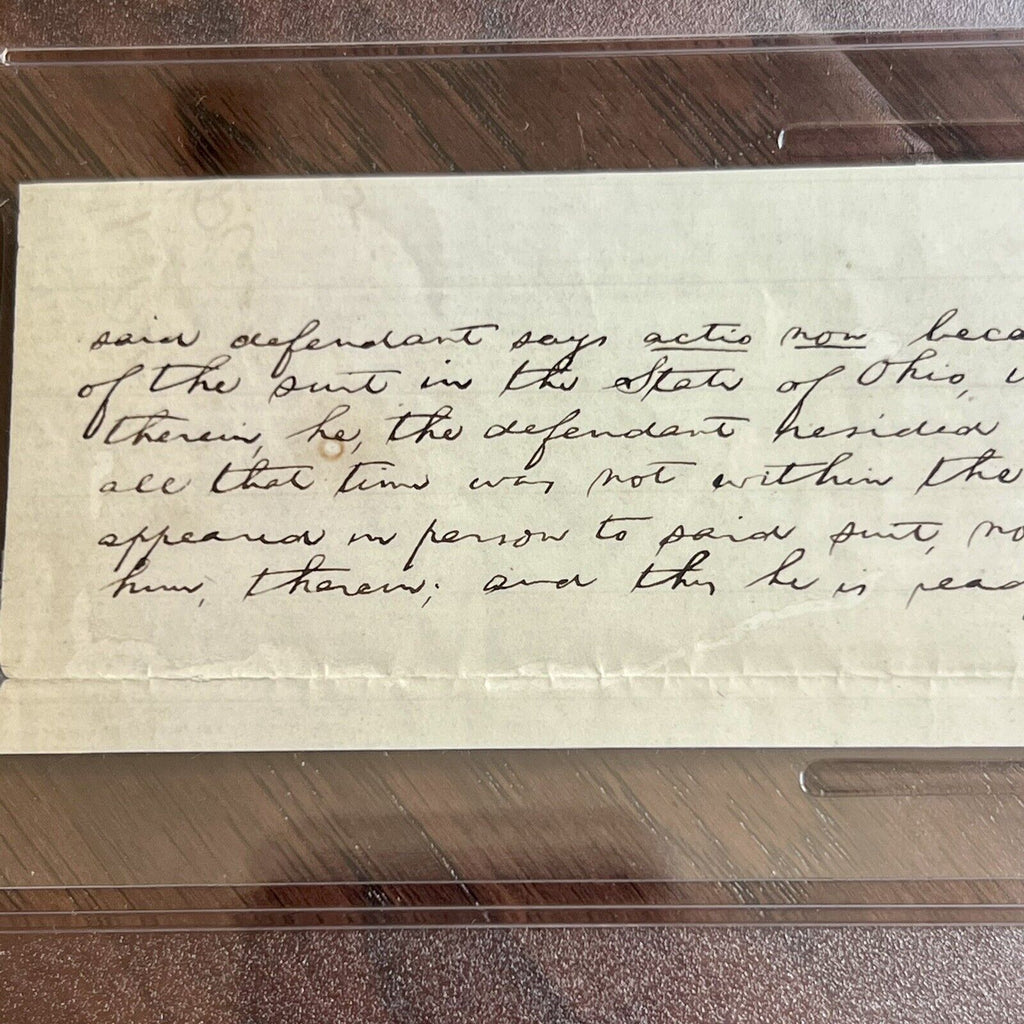 said defendant says actio non beca
of the suit in the State of Ohio,
therein, he, the defendant resided
all that time was not within the
appeared in person to said suit, no
him, therein; and this he is read